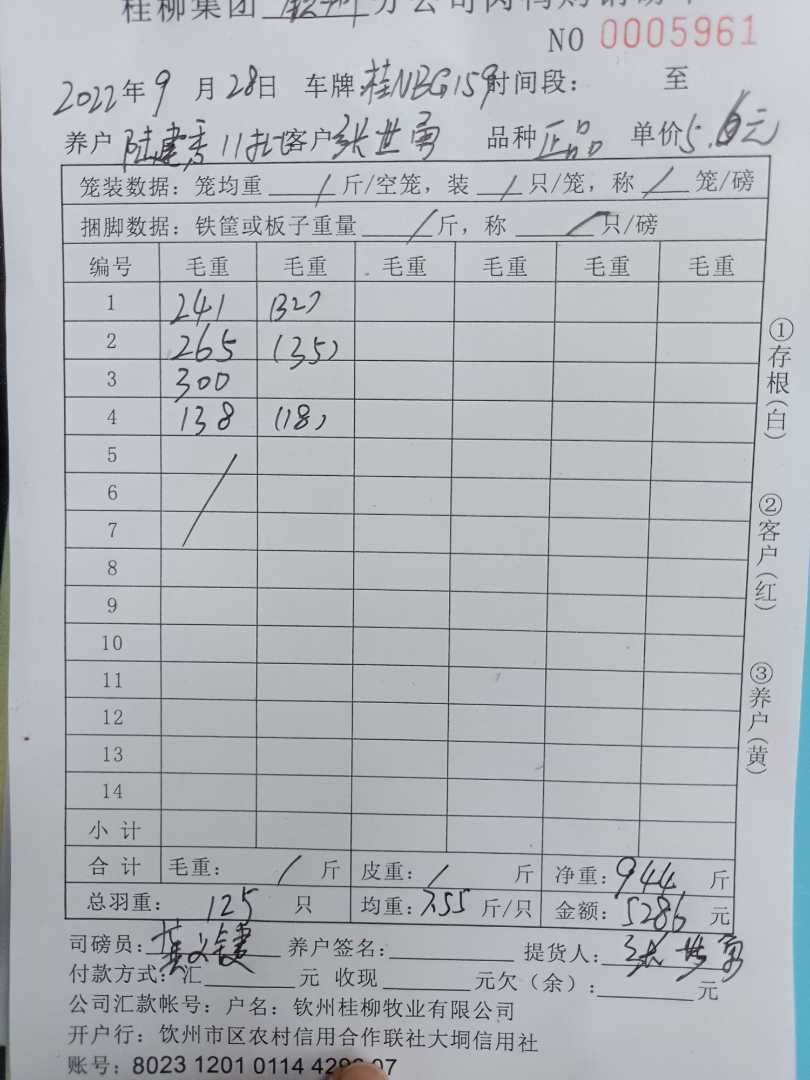 桂柳集团 钦州 分公司肉鸭购销磅单
NO 0005961
2022年9月28日 车牌桂NBG159时间段: 至
养户 陆建秀 11批 客户 张世勇 品种 正品 单价5.6元
笼装数据: 笼均重 / 斤/空笼, 装 / 只/笼, 称 / 笼/磅
捆脚数据: 铁筐或板子重量 / 斤, 称 / 只/磅
编号 毛重 毛重 毛重 毛重 毛重 毛重
1 241 (32)
2 265 (35)
3 300
4 138 (18)
5
6
7
8
9
10
11
12
13
14
小计
合计 毛重: / 斤 皮重: / 斤 净重: 944 斤
总羽重: 125 只 均重: 7.55 斤/只 金额: 5286 元
司磅员: 养户签名: 提货人: 张世勇
付款方式: 汇 元 收现 元欠(余): 元
公司汇款帐号: 户名: 钦州桂柳牧业有限公司
开户行: 钦州市区农村信用合作联社大垌信用社
账号: 8023 1201 0114 4293 07
①存根(白)
②客户(红)
③养户(黄)